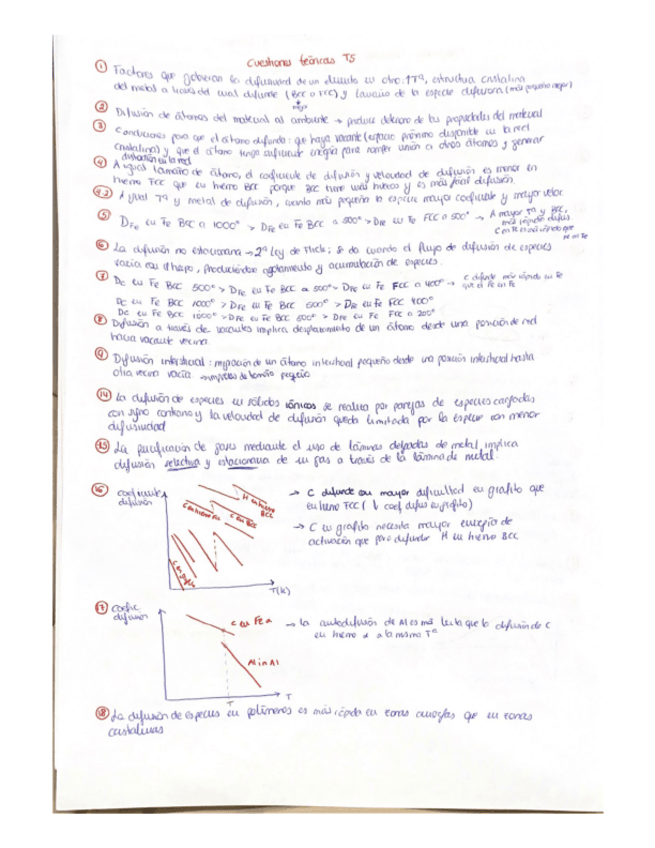 Cuestiones teóricas T5
① Factores que gobiernan la difusividad de un elemento en otro: ↑Tª, estructura cristalina
del metal a través del cual difunde (BCC o FCC) y tamaño de la especie difusora (más pequeño mejor)
② Difusión de átomos del material al ambiente → produce deterioro de las propiedades del material
③ Condiciones para que el átomo difunda: que haya vacante (espacio próximo disponible en la red
cristalina) y que el átomo tenga suficiente energía para romper unión a otros átomos y generar
distorsión en la red
④ A igual tamaño de átomo, el coeficiente de difusión y velocidad de difusión es menor en
hierro FCC que en hierro BCC porque BCC tiene más huecos y es más fácil difusión.
④.2 A igual Tª y metal de difusión, cuanto más pequeña la especie mayor coeficiente y mayor veloc
⑤ D Fe en Fe BCC a 1000° > D Fe en Fe BCC a 500° > D Fe en Fe FCC a 500° → A mayor Tª y BCC,
más rápido difus
C en Fe es más rápido que
Fe en Fe
⑥ La difusión no estacionaria → 2ª Ley de Fick; se da cuando el flujo de difusión de especies
varía con el tiempo, produciéndose agotamiento y acumulación de especies.
⑦ Dc en Fe BCC 500° > D Fe en Fe BCC a 500° > D Fe en Fe FCC a 400° → C difunde más rápido en Fe
que el Fe en Fe
Dc en Fe BCC 1000° > D Fe en Fe BCC 500° > D Fe en Fe FCC 400°
Dc en Fe BCC 1000° > D Fe en Fe BCC 500° > D Fe en Fe FCC a 200°
⑧ Difusión a través de vacantes implica desplazamiento de un átomo desde una posición de red
hacia vacante vecina.
⑨ Difusión intersticial: migración de un átomo intersticial pequeño desde una posición intersticial hasta
otra vecina vacía. → impurezas de tamaño pequeño
⑭ La difusión de especies en sólidos iónicos se realiza por parejas de especies cargadas
con signo contrario y la velocidad de difusión queda limitada por la especie con menor
difusividad
⑮ La purificación de gases mediante el uso de láminas delgadas de metal, implica
difusión selectiva y estacionaria de un gas a través de la lámina de metal.
⑯ coeficiente
difusión
H en hierro
BCC
C en BCC
C en grafito
T(K)
→ C difunde con mayor dificultad en grafito que
en hierro FCC (↓ coef. difus en grafito)
→ C en grafito necesita mayor energía de
activación que para difundir H en hierro BCC
⑰ coefic
difusión
C en Fe α
Al in Al
T
T
→ la autodifusión de Al es más lenta que la difusión de C
en hierro α a la misma Tª
⑱ La difusión de especies en polímeros es más rápida en zonas amorfas que en zonas
cristalinas